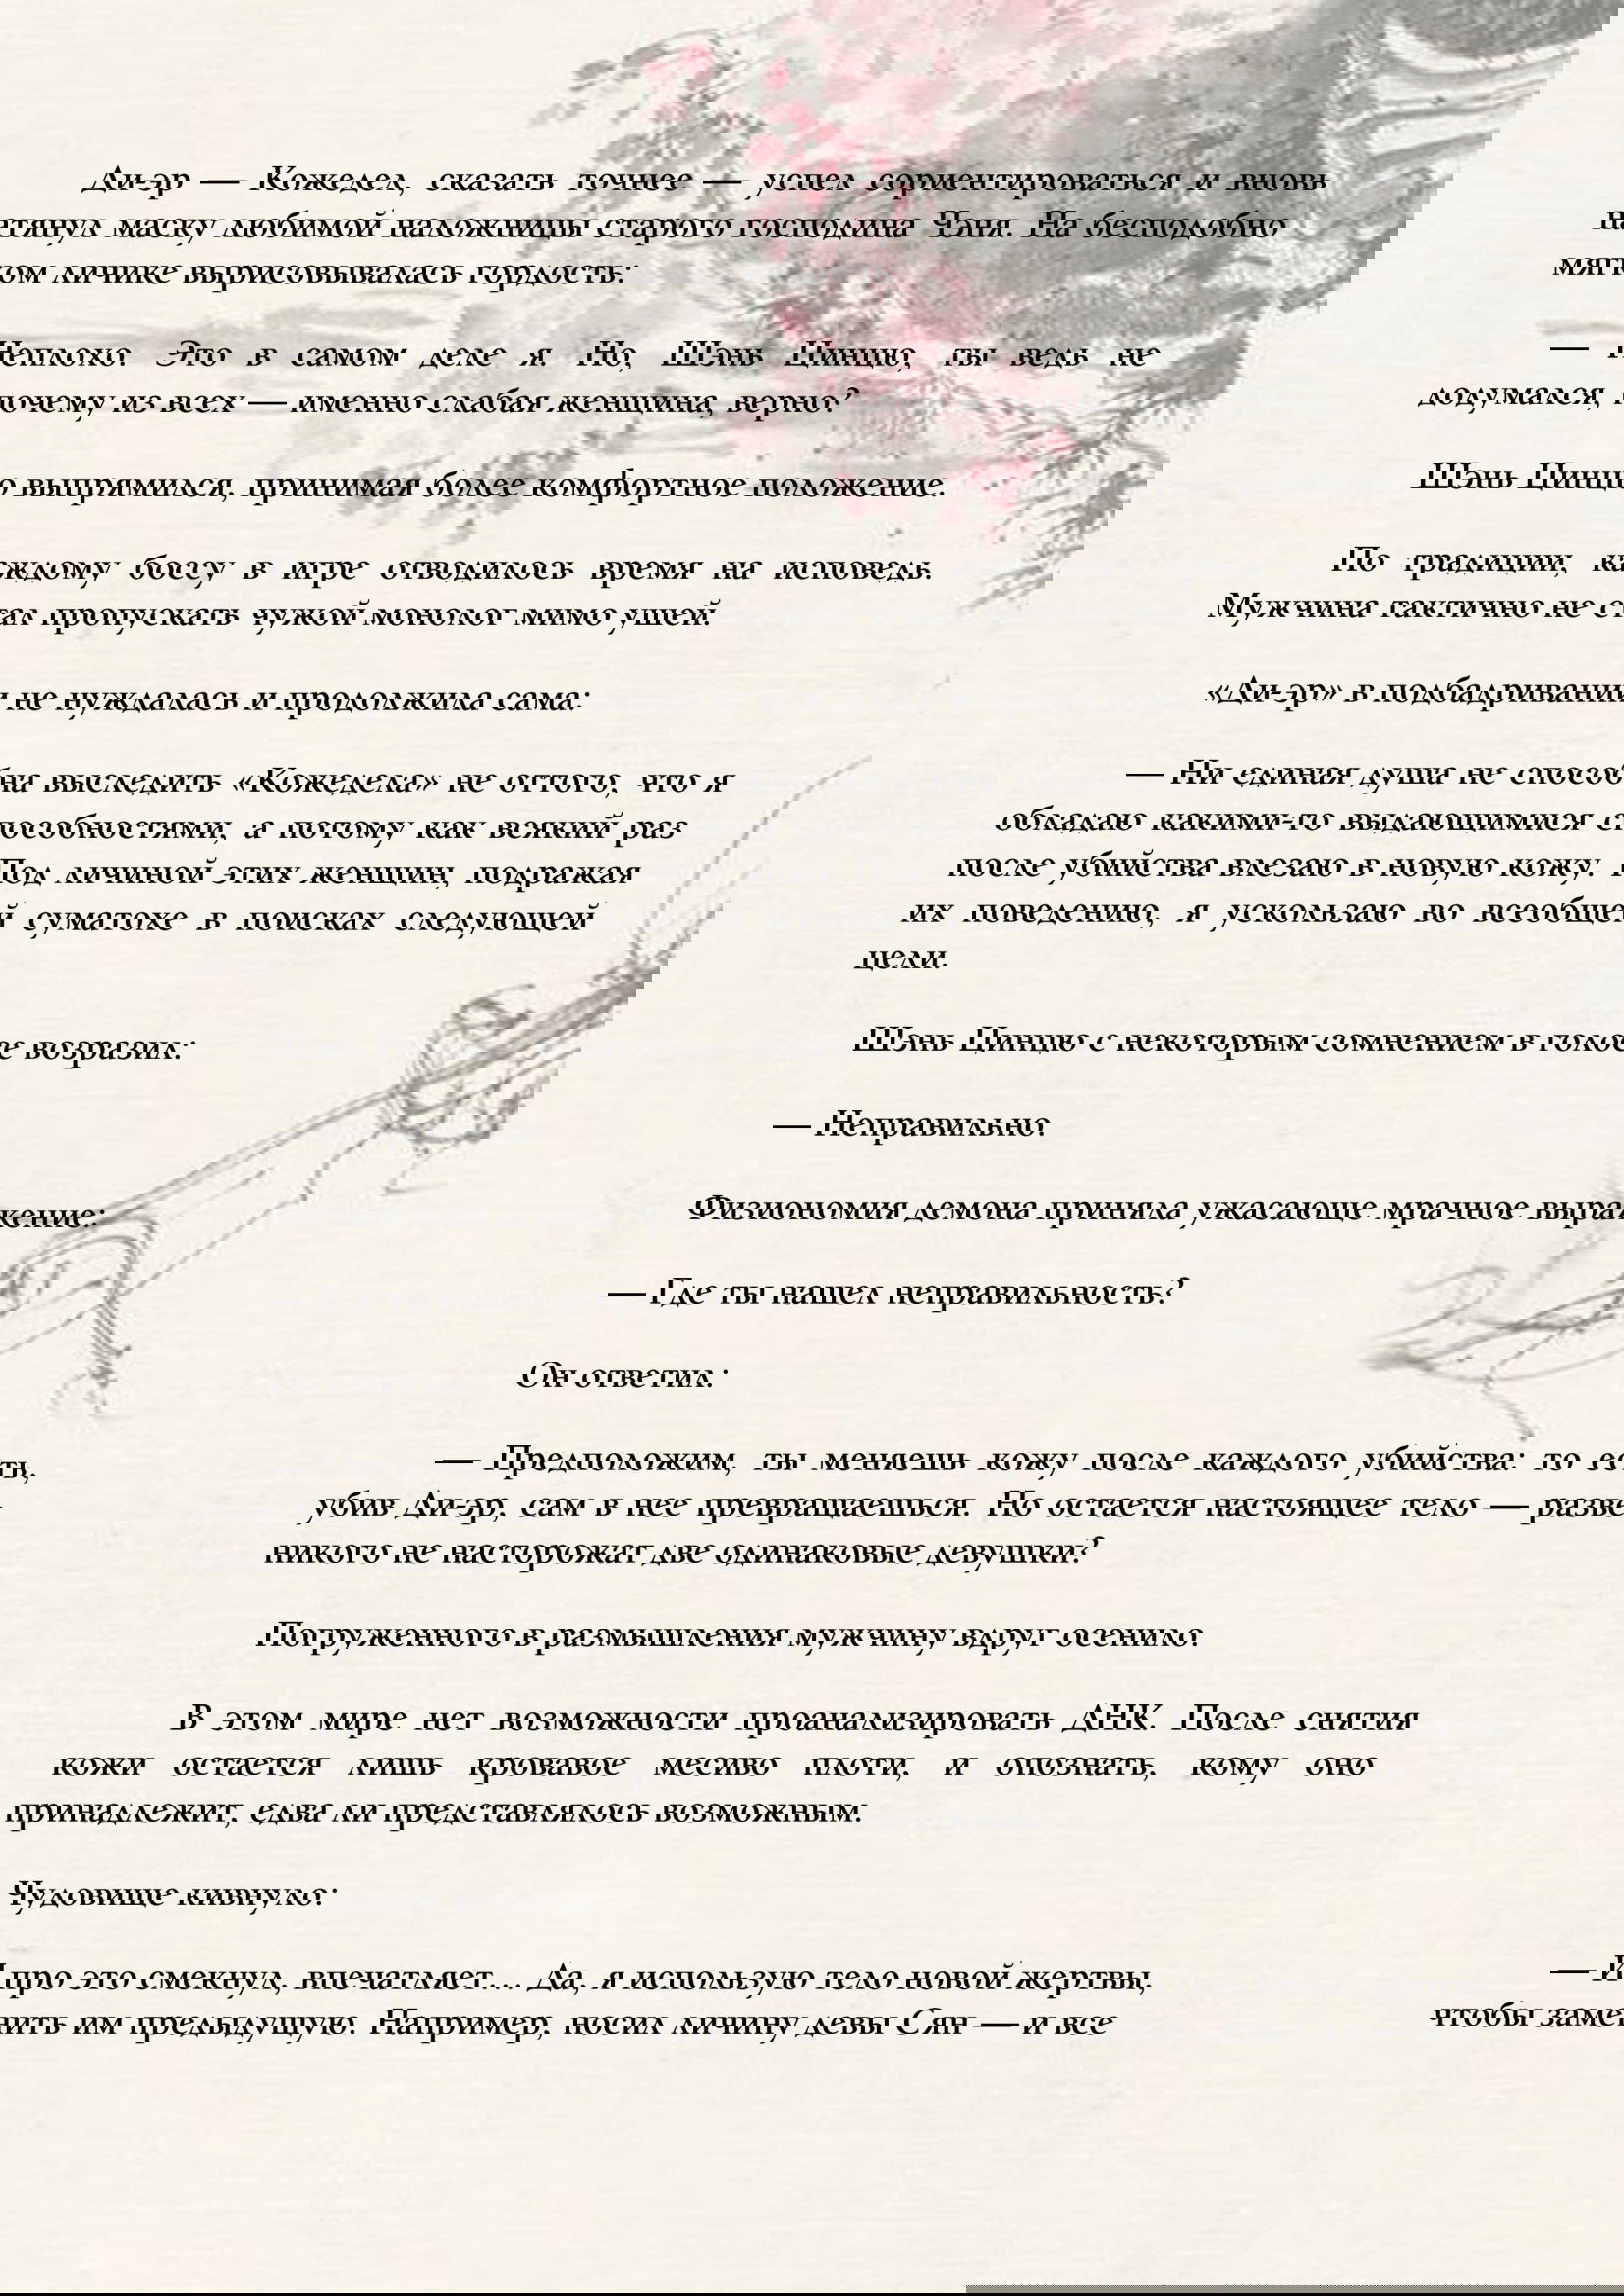 Ди-эр — Кожедел, сказать точнее — успел сориентироваться и вновь
натянул маску любимой наложницы старого господина Чэня. На бесподобно
мягком личике вырисовывалась гордость:
— Неплохо. Это в самом деле я. Но, Шэнь Цинцю, ты ведь не
додумался, почему из всех — именно слабая женщина, верно?
Шэнь Цинцю выпрямился, принимая более комфортное положение.
По традиции, каждому боссу в игре отводилось время на исповедь.
Мужчина тактично не стал пропускать чужой монолог мимо ушей.
«Ди-эр» в подбадривании не нуждалась и продолжила сама:
— Ни единая душа не способна выследить «Кожедела» не оттого, что я
обладаю какими-то выдающимися способностями, а потому как всякий раз
после убийства влезаю в новую кожу. Под личиной этих женщин, подражая
их поведению, я ускользаю во всеобщей суматохе в поисках следующей
цели.
Шэнь Цинцю с некоторым сомнением в голосе возразил:
— Неправильно.
Физиономия демона приняла ужасающе мрачное выражение:
— Где ты нашел неправильность?
Он ответил:
— Предположим, ты меняешь кожу после каждого убийства: то есть,
убив Ди-эр, сам в нее превращаешься. Но остается настоящее тело — разве
никого не насторожат две одинаковые девушки?
Погруженного в размышления мужчину вдруг осенило.
В этом мире нет возможности проанализировать ДНК. После снятия
кожи остается лишь кровавое месиво плоти, и опознать, кому оно
принадлежит, едва ли представлялось возможным.
Чудовище кивнуло:
— И про это смекнул, впечатляет…. Да, я использую тело новой жертвы,
чтобы заменить им предыдущую. Например, носил личину девы Сян — и все